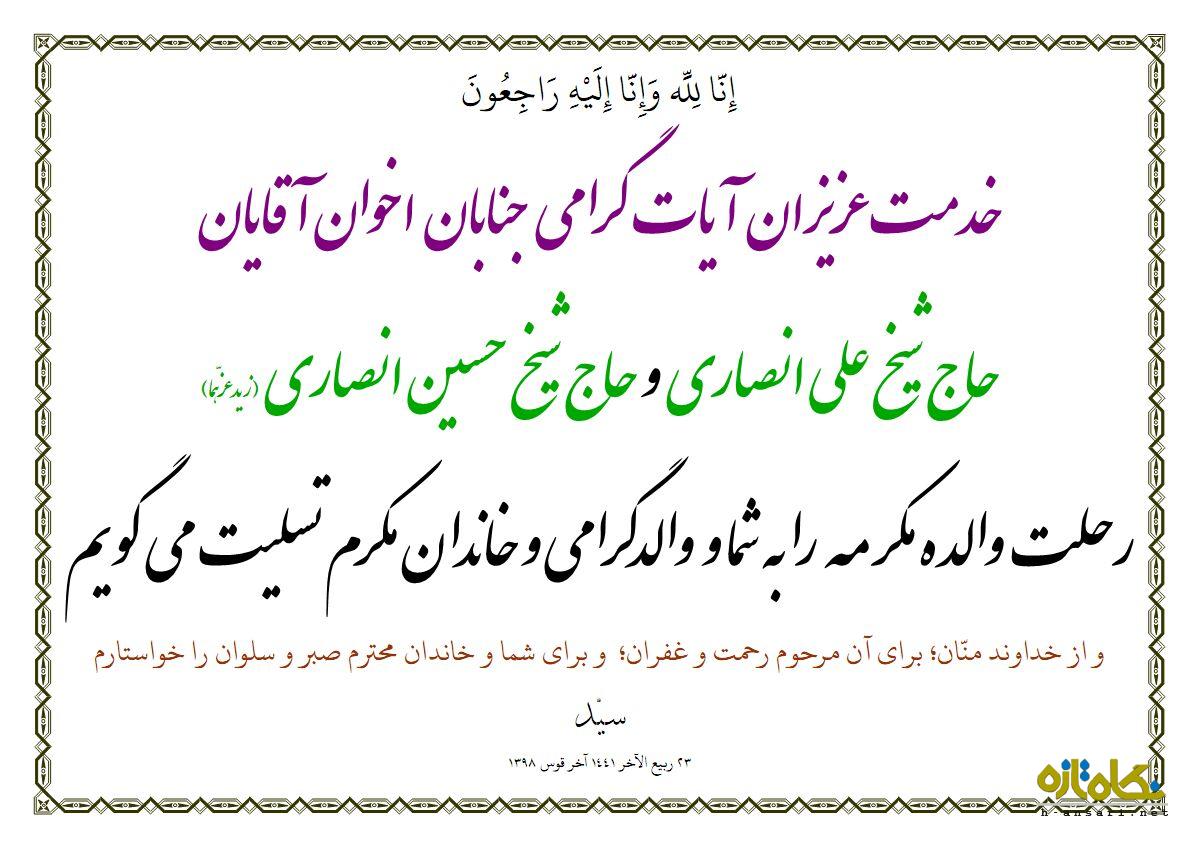 إِنّا لِلَّه وَإِنّا إِلَيْهِ رَاجِعُونَ
خدمت عزیزان آیات گرامی جنابان اخوان آقایان
حاج شیخ علی انصاری و حاج شیخ حسین انصاری (زید عزّهما)
رحلت والده مکرمه را به شما و والد گرامی و خاندان مکرم تسلیت می گویم
و از خداوند منّان؛ برای آن مرحوم رحمت و غفران؛ و برای شما و خاندان محترم صبر و سلوان را خواستارم
سیّد
۲۳ ربیع الآخر ۱۴۴۱ آخر قوس ۱۳۹۸
نگاه تازه
h-ansari.net